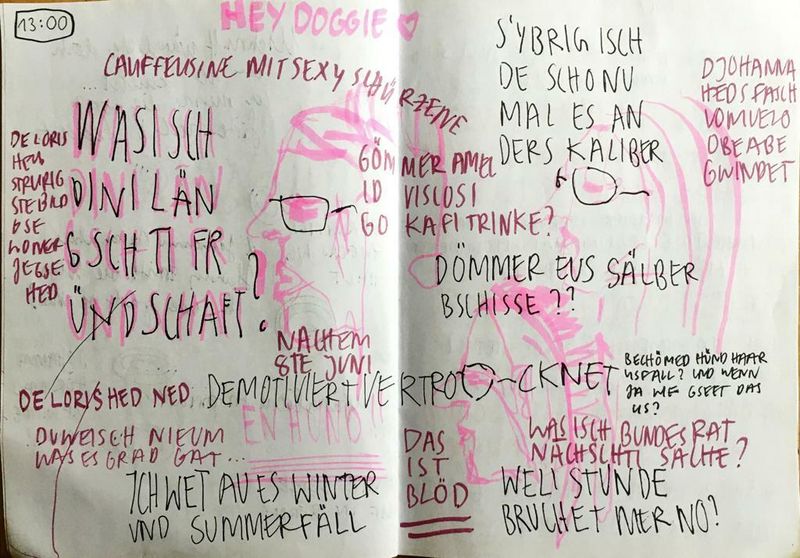 13:00
HEY DOGGIE
CAUFFEUSINE MIT SEXY SCHÜRZENE
WAS ISCH
DINI LÄN
GSCHTI FR
ÜNDSCHAFT?
DE LORIS
STRURIG
STEBILD
HED
GÖM
ID
GO
NACHEM
8TE JUNI
DE LORIS HED NED
DEMOTIVIERT VERTRO CKNET
EN HUND
DU WEISCH NIEUM
WAS ES GRAD GAT...
ICH WET AU ES WINTER
UND SUMMERFÄLL
S'YBRIG ISCH
DE SCHO NU
MAL ES AN
DERS KALIBER
D JOHANNA
HED S FÄSCH
VOM VELO
OBE ABE
GWINDET
MER AMEL
VISCOSI
KAFI TRINKE?
DÖMMER EUS SÄLBER
BSCHISSE??
BECHÖMED HÜND HAAR
USFALL? UND WENN
JA WE GSEET DAS
US?
WAS ISCH BUNDESRAT
NÄCHSCHTI SACHE?
DAS
IST
BLÖD
WELI STUNDE
BRUCHET MER NO?